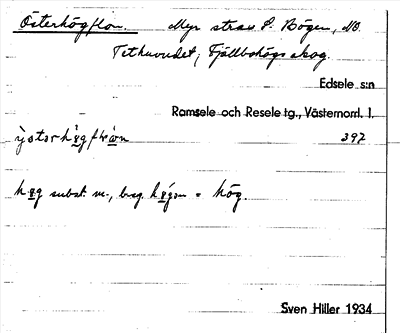 Österhögflon. Myr strax S. Bögen, NO.
Tethuvudet, Fjällbohögs skog.
Edsele s:n
Ramsele och Resele tg., Västernorrl. l.
397
hög subst. m., = hög.
Sven Hiller 1934